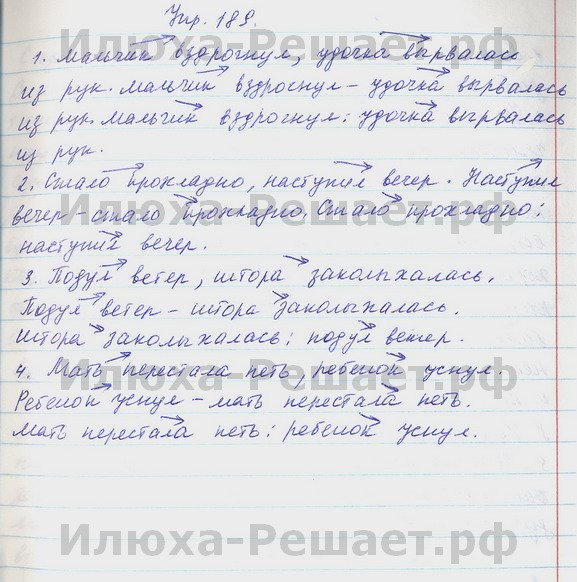 Упр. 189.
1. Мальчик вздрогнул, удочка вырвалась
из рук. Мальчик вздрогнул – удочка вырвалась
из рук. Мальчик вздрогнул: удочка вырвалась
из рук.
2. Стало прохладно, наступил вечер. Наступил
вечер – стало прохладно. Стало прохладно:
наступил вечер.
3. Подул ветер, штора заколыхалась.
Подул ветер – штора заколыхалась.
Штора заколыхалась: подул ветер.
4. Мать перестала петь, ребенок уснул.
Ребенок уснул – мать перестала петь.
Мать перестала петь: ребенок уснул.
Илюха-Решает.рф
Илюха-Решает.рф
Илюха-Решает.рф
Илюха-Решает.рф